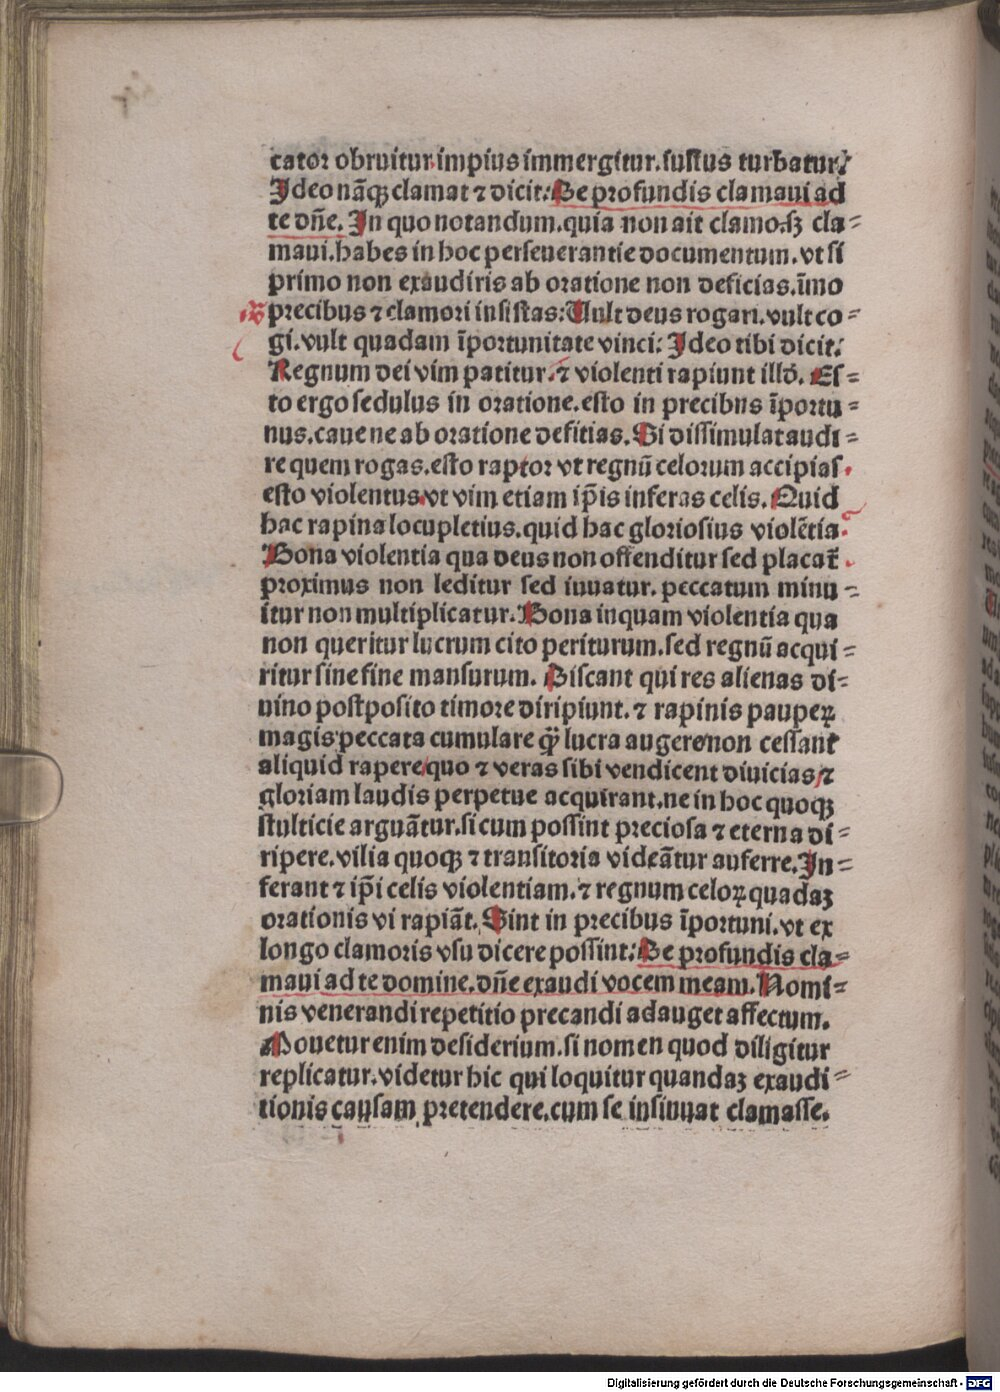 cator obruitur.impius immergitur.iustus turbatur.
Ideo nāqꝫ clamat ⁊ dicit: De profundis clamaui ad
te dn̄e. In quo notandum.quia non ait clamo.sꝫ cla⸗
maui.habes in hoc perseuerantie documentum.vt si
primo non exaudiris ab oratione non deficias.īmo
precibus ⁊ clamori insistas: Uult deus rogari.vult co⸗
gi.vult quadam īportunitate vinci: Ideo tibi dicit:
Regnum dei vim patitur.⁊ violenti rapiunt illō. Es⸗
to ergo sedulus in oratione.esto in precibus īportu⸗
nus.caue ne ab oratione defitias. Si dissimulat audi⸗
re quem rogas.esto raptor vt regnū celorum accipias.
esto violentus.vt vim etiam ip̄is inferas celis. Quid
hac rapina locupletius.quid hac gloriosius violētia.
Bona violentia qua deus non offenditur sed placat̄
proximus non leditur sed iuuatur. peccatum minu⸗
itur non multiplicatur. Bona inquam violentia qua
non queritur lucrum cito periturum.sed regnū acqui⸗
ritur sine fine mansurum. Discant qui res alienas di⸗
uino postposito timore diripiunt.⁊ rapinis pauperꝝ
magis peccata cumulare qꝫ̄ lucra augere.non cessant
aliquid rapere quo ⁊ veras sibi vendicent diuicias ⁊
gloriam laudis perpetue acquirant.ne in hoc quoqꝫ
stulticie arguātur.si cum possint preciosa ⁊ eterna di⸗
ripere.vilia quoqꝫ ⁊ transitoria videātur auferre. In⸗
ferant ⁊ ip̄i celis violentiam.⁊ regnum celoꝝ quadaꝫ
orationis vi rapiāt. Sint in precibus īportuni.vt ex
longo clamoris vsu dicere possint: De profundis cla⸗
maui ad te domine.dn̄e exaudi vocem meam. Nomi⸗
nis venerandi repetitio precandi adauget affectum.
Mouetur enim desiderium.si nomen quod diligitur
replicatur.videtur hic qui loquitur quandaꝫ exaudi⸗
tionis causam pretendere.cum se insinuat clamasse.
Digitalisierung gefördert durch die Deutsche Forschungsgemeinschaft - DFG